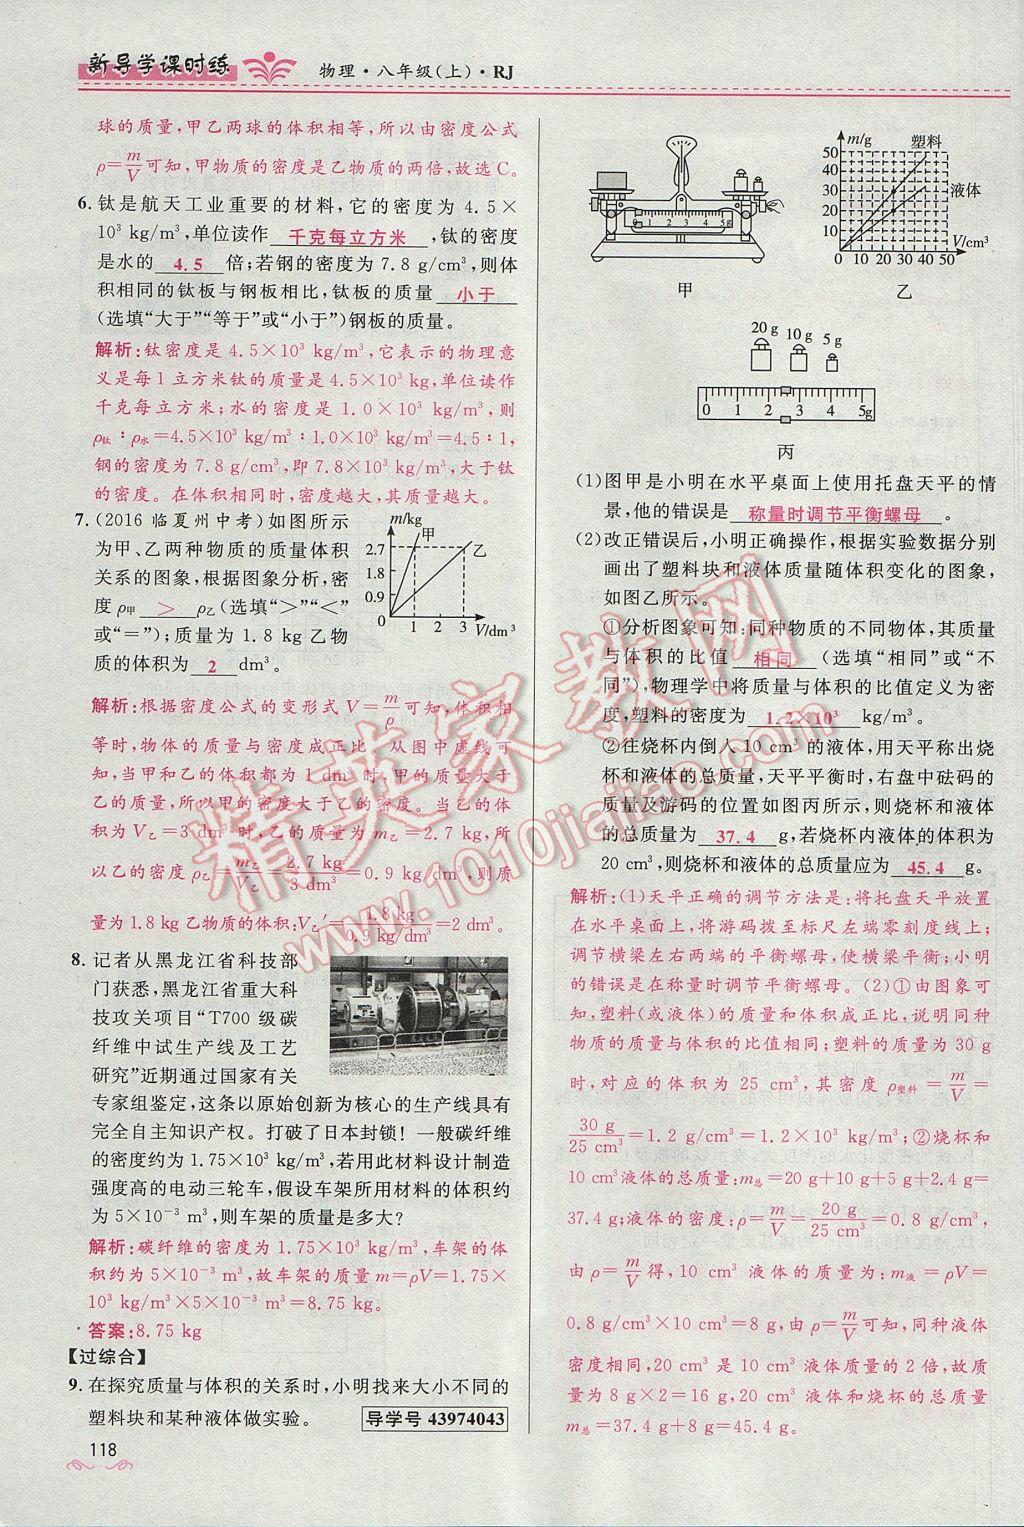 新导学课时练 物理·八年级(上)·RJ
球的质量,甲乙两球的体积相等,所以由密度公式
ρ=m/V可知,甲物质的密度是乙物质的两倍,故选C。
6. 钛是航天工业重要的材料,它的密度为4.5×
10³ kg/m³,单位读作 千克每立方米 ,钛的密度
是水的 4.5 倍;若钢的密度为7.8 g/cm³,则体
积相同的钛板与钢板相比,钛板的质量 小于
(选填“大于”“等于”或“小于”)钢板的质量。
解析:钛密度是4.5×10³ kg/m³,它表示的物理意
义是每1立方米钛的质量是4.5×10³ kg,单位读作
千克每立方米;水的密度是1.0×10³ kg/m³,则
ρ钛∶ρ水=4.5×10³ kg/m³∶1.0×10³ kg/m³=4.5∶1,
钢的密度为7.8 g/cm³,即7.8×10³ kg/m³,大于钛
的密度。在体积相同时,密度越大,其质量越大。
7. (2016临夏州中考)如图所示
为甲、乙两种物质的质量体积
关系的图象,根据图象分析,密
度ρ甲 > ρ乙(选填“>”“<”
或“=”);质量为1.8 kg乙物
质的体积为 2 dm³。
m/kg
甲
乙
2.7
1.8
0.9
0 1 2 3 V/dm³
解析:根据密度公式的变形式V=m/ρ可知,体积相
等时,物体的质量与密度成正比。从图中虚线可
知,当甲和乙的体积都为1 dm³时,甲的质量大于
乙的质量,所以甲的密度大于乙的密度。当乙的体
积为V乙=3 dm³时,乙的质量为m乙=2.7 kg,所
以乙的密度ρ乙=m乙/V乙=2.7 kg/3 dm³=0.9 kg/dm³,则质
量为1.8 kg乙物质的体积:V乙′=1.8 kg/0.9 kg/dm³=2 dm³。
8. 记者从黑龙江省科技部
门获悉,黑龙江省重大科
技攻关项目“T700级碳
纤维中试生产线及工艺
研究”近期通过国家有关
专家组鉴定,这条以原始创新为核心的生产线具有
完全自主知识产权。打破了日本封锁!一般碳纤维
的密度约为1.75×10³ kg/m³,若用此材料设计制造
强度高的电动三轮车,假设车架所用材料的体积约
为5×10⁻³ m³,则车架的质量是多大?
解析:碳纤维的密度为1.75×10³ kg/m³,车架的体
积约为5×10⁻³ m³,故车架的质量m=ρV=1.75×
10³ kg/m³×5×10⁻³ m³=8.75 kg。
答案:8.75 kg
【过综合】
9. 在探究质量与体积的关系时,小明找来大小不同的
塑料块和某种液体做实验。 导学号 43974043
118
0 1 2 3 4 5g
甲
m/g 塑料
液体
50
40
30
20
10
0 10 20 30 40 50 V/cm³
乙
20 g 10 g 5 g
0 1 2 3 4 5g
丙
(1)图甲是小明在水平桌面上使用托盘天平的情
景,他的错误是 称量时调节平衡螺母 。
(2)改正错误后,小明正确操作,根据实验数据分别
画出了塑料块和液体质量随体积变化的图象,
如图乙所示。
①分析图象可知:同种物质的不同物体,其质量
与体积的比值 相同 (选填“相同”或“不
同”),物理学中将质量与体积的比值定义为密
度,塑料的密度为 1.2×10³ kg/m³。
②往烧杯内倒入10 cm³的液体,用天平称出烧
杯和液体的总质量,天平平衡时,右盘中砝码的
质量及游码的位置如图丙所示,则烧杯和液体
的总质量为 37.4 g;若烧杯内液体的体积为
20 cm³,则烧杯和液体的总质量应为 45.4 g。
解析:(1)天平正确的调节方法是:将托盘天平放置
在水平桌面上,将游码拨至标尺左端零刻度线上;
调节横梁左右两端的平衡螺母,使横梁平衡;小明
的错误是在称量时调节平衡螺母。(2)①由图象可
知,塑料(或液体)的质量和体积成正比,说明同种
物质的质量与体积的比值相同;塑料的质量为30 g
时,对应的体积为25 cm³,其密度ρ塑料=m/V=
30 g/25 cm³=1.2 g/cm³=1.2×10³ kg/m³;②烧杯和
10 cm³液体的总质量:m总=20 g+10 g+5 g+2.4 g=
37.4 g;液体的密度:ρ=m/V=20 g/25 cm³=0.8 g/cm³,
由ρ=m/V得,10 cm³液体的质量为:m液=ρV=
0.8 g/cm³×10 cm³=8 g;由ρ=m/V可知,同种液体
密度相同,20 cm³是10 cm³液体质量的2倍,故质
量为8 g×2=16 g,20 cm³液体和烧杯的总质量
m总=37.4 g+8 g=45.4 g。
精英家教网
www.1010jiajiao.com